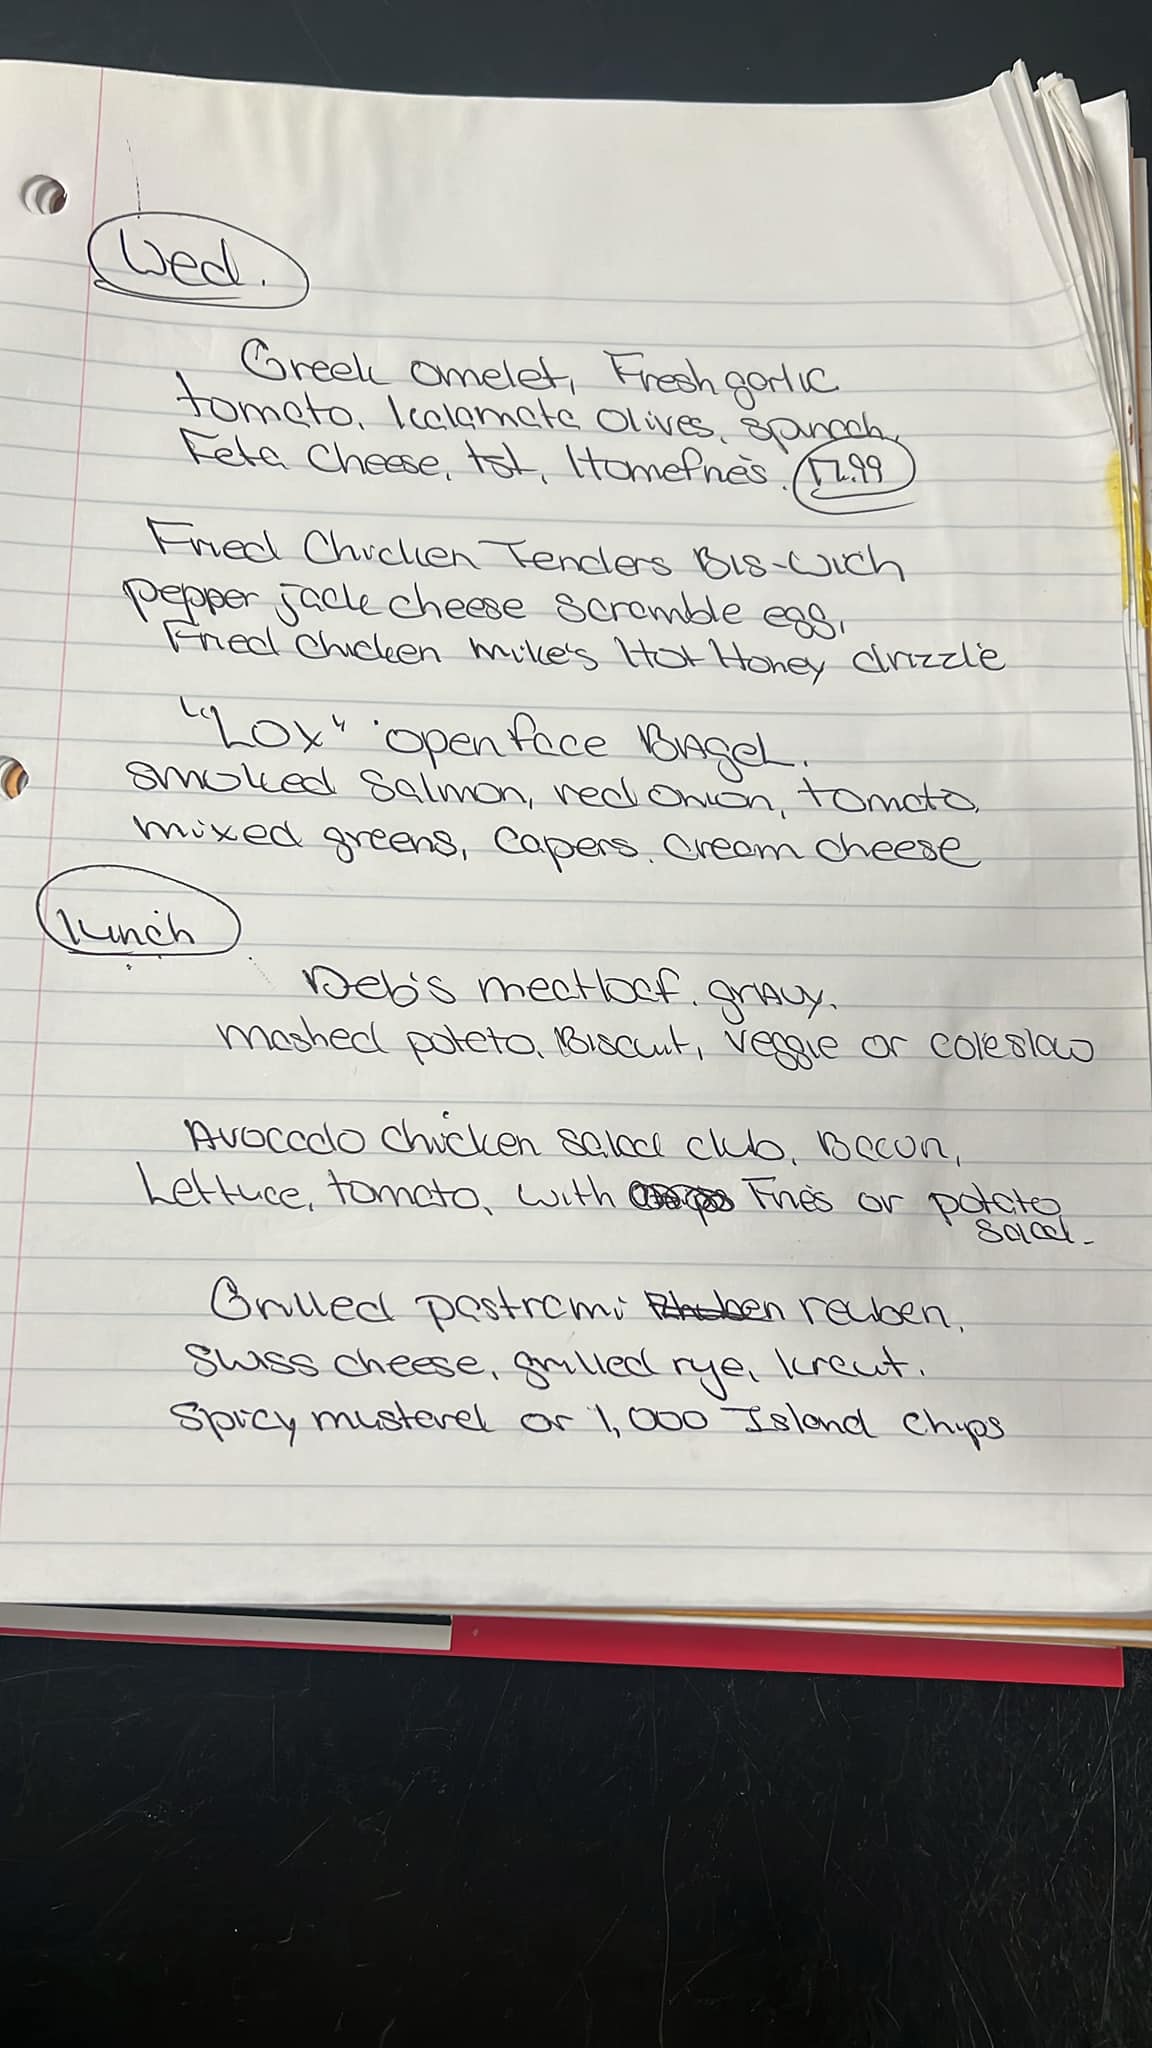 Wed.
Greek omelet, Fresh garlic
tomato, kalamata olives, spinach,
Feta Cheese, tst, Homefries. 12.99
Fried Chicken Tenders Bis-wich
pepper jack cheese scramble egg,
Fried chicken mike's Hot Honey drizzle
"Lox" open face Bagel.
smoked salmon, red onion, tomato,
mixed greens, capers. cream cheese
lunch
Deb's meatloaf. gravy.
mashed poteto. Biscuit, veggie or coleslaw
Avocado chicken salad club, Bacon,
Lettuce, tomato, with Fries or potato
salad.
Grilled pastrami reuben,
swiss cheese, grilled rye, kraut.
spicy musterd or 1,000 Island chips